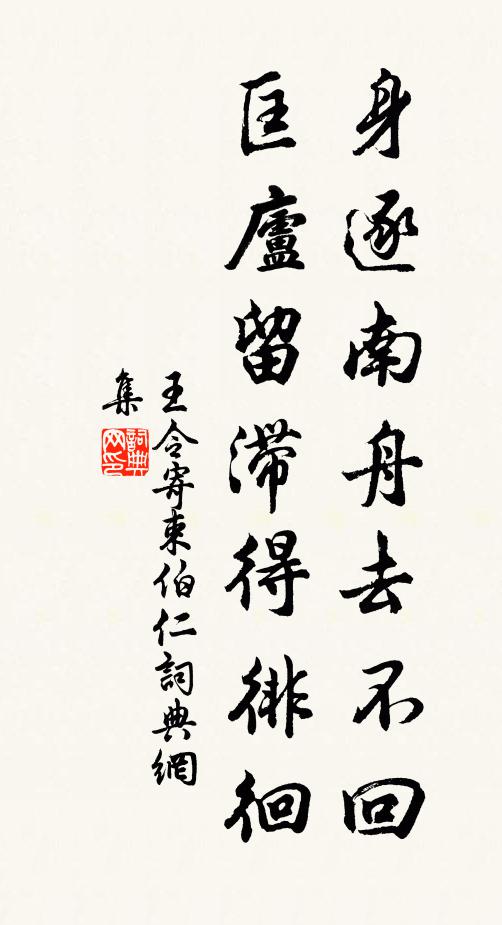 身逐南舟去不回
匡廬留滯得徘徊
王令寄束伯仁詞典網
集
詞典网印